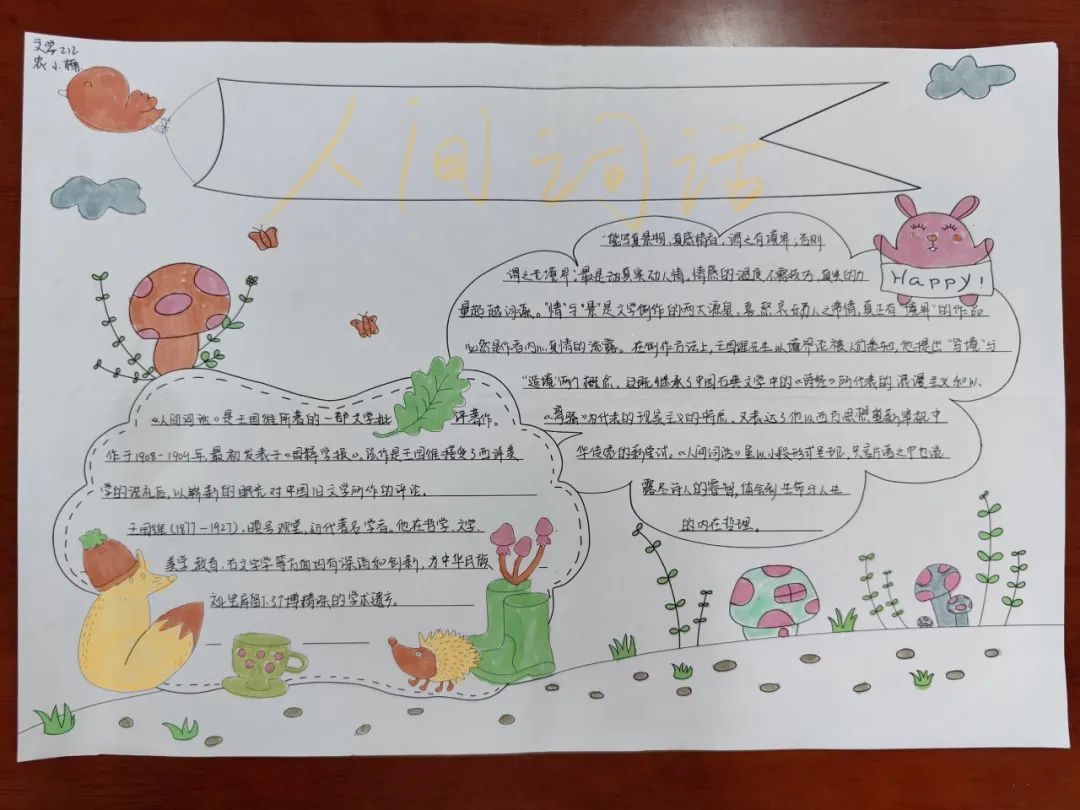 文学212
农小梅
人间词话
"能写真景物、真感情者,谓之有境界;否则
谓之无境界",最是动真实动人情。情感的温度不需技巧,真实的力
量超越词藻。"情"与"景"是文学创作的两大源泉、喜怒哀乐为人之常情,真正有"境界"的作品
必然是作者内心真情的流露。在创作方法上,王国维先生以境界论被人们熟知,他提出"写境"与
"造境"两个概念,这既继承了中国古典文学中的《诗经》所代表的浪漫主义和以
《离骚》为代表的现实主义的特质,又表达了他以西方思想重新审视中
华传统的新尝试。《人间词话》虽以小段形式呈现,只言片语之中也流
露尽诗人的睿智,体会到生命与人生
的内在哲理。
Happy!
《人间词话》是王国维所著的一部文学批评著作。
作于1908-1909年,最初发表于《国粹学报》。该作是王国维接受了西洋美
学的洗礼后,以崭新的眼光对中国旧文学所作的评论。
王国维(1877-1927),晚号观堂,近代著名学者。他在哲学、文学、
美学、教育、古文字学等方面均有深诣和创新,为中华民族
文化宝库留下了广博精深的学术遗产。